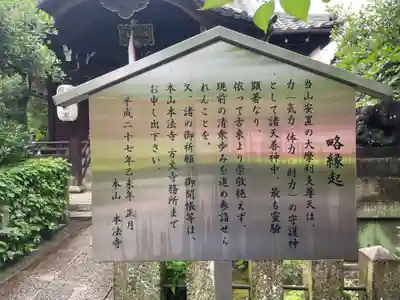 略縁起
当山安置の大摩利支尊天は、
力「気力、体力、財力」の守護神
として諸天善神中、最も霊験
顕著なり。
依って古来より崇敬絶えず、
現前の清衆歩みを進め参詣せら
れんことを。
又、諸の御祈願、御開帳等は、
本山本法寺・方丈寺務所まで
お申し出下さい。
平成二十七年乙未年 正月
本山 本法寺